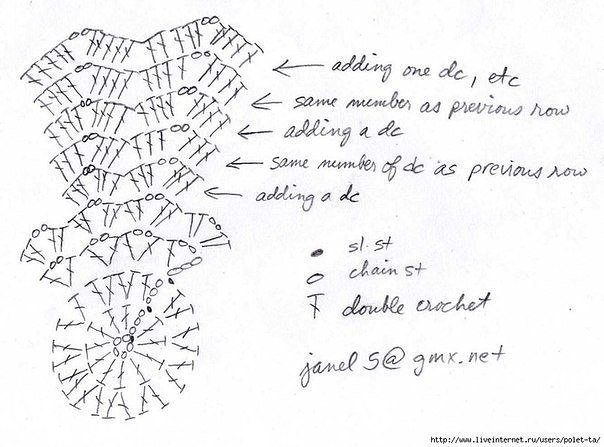 adding one dc, etc
same number as previous row
adding a dc
same number of dc as previous row
adding a dc
sl.st
chain st
double crochet
janel5@gmx.net
http://www.liveinternet.ru/users/polet-ta/